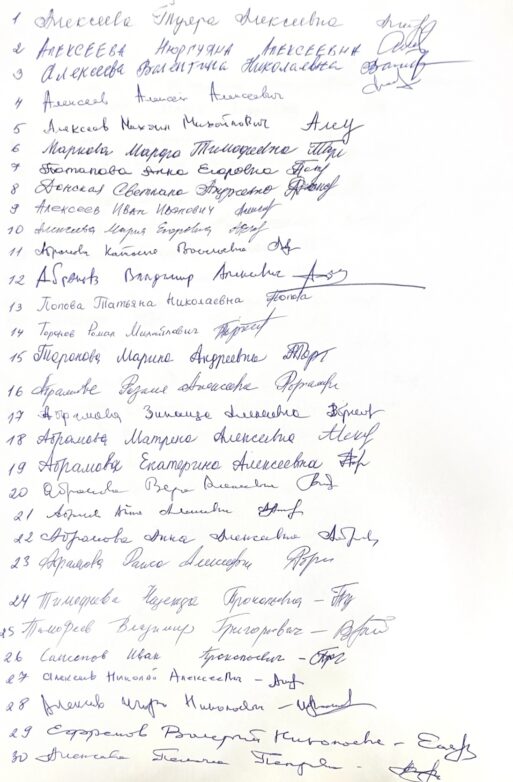 1 Алексеева Туяра Алексеевна
2 АЛЕКСЕЕВА НЮРГУЯНА АЛЕКСЕЕВНА
3 Алексеева Валентина Николаевна
4 Алексеев Алексей Алексеевич
5 Алексеев Михаил Михайлович
6 Маркова Марфа Тимофеевна
7 Потапова Анна Егоровна
8 Донская Светлана Андреевна
9 Алексеев Иван Иванович
10 Алексеева Мария Егоровна
11 Васильевна
12 Абрамов Владимир Алексеевич
13 Попова Татьяна Николаевна Попова
14 Роман Михайлович
15 Марина Андреевна
16
17 Абрамова Зинаида Алексеевна
18 Абрамова Матрена Алексеевна
19 Абрамова Екатерина Алексеевна
20 Абрамова Вера Алексеевна
21
22 Абрамова Анна Алексеевна
23 Абрамова Раиса Алексеевна
24 Тимофеева Надежда Прокопьевна –
25 Тимофеев Владимир Григорьевич –
26 Иван Прокопьевич –
27 Алексеев Николай Алексеевич –
28 Алексеев Игорь Николаевич –
29 Ефремов Валерий Николаевич –
30 Алексеева Петровна -